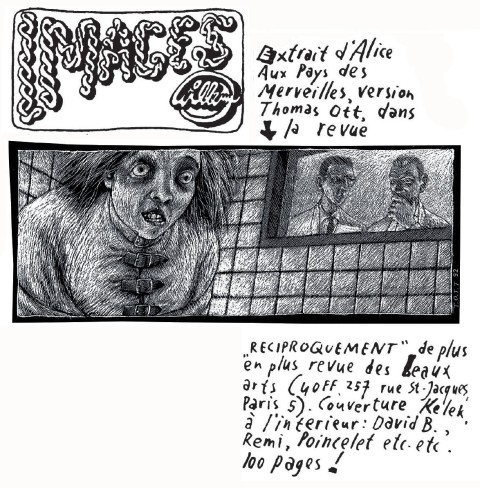 IMAGES
Willem
Extrait d'Alice
Aux Pays des
Merveilles, version
Thomas Ott, dans
la revue
T.OTT 92
„RECIPROQUEMENT" de plus
en plus revue des beaux
arts (40FF, 257 rue St-Jacques,
Paris 5). Couverture Kelek,
à l'interieur: David B.,
Remi, Poincelet etc. etc.
100 pages!